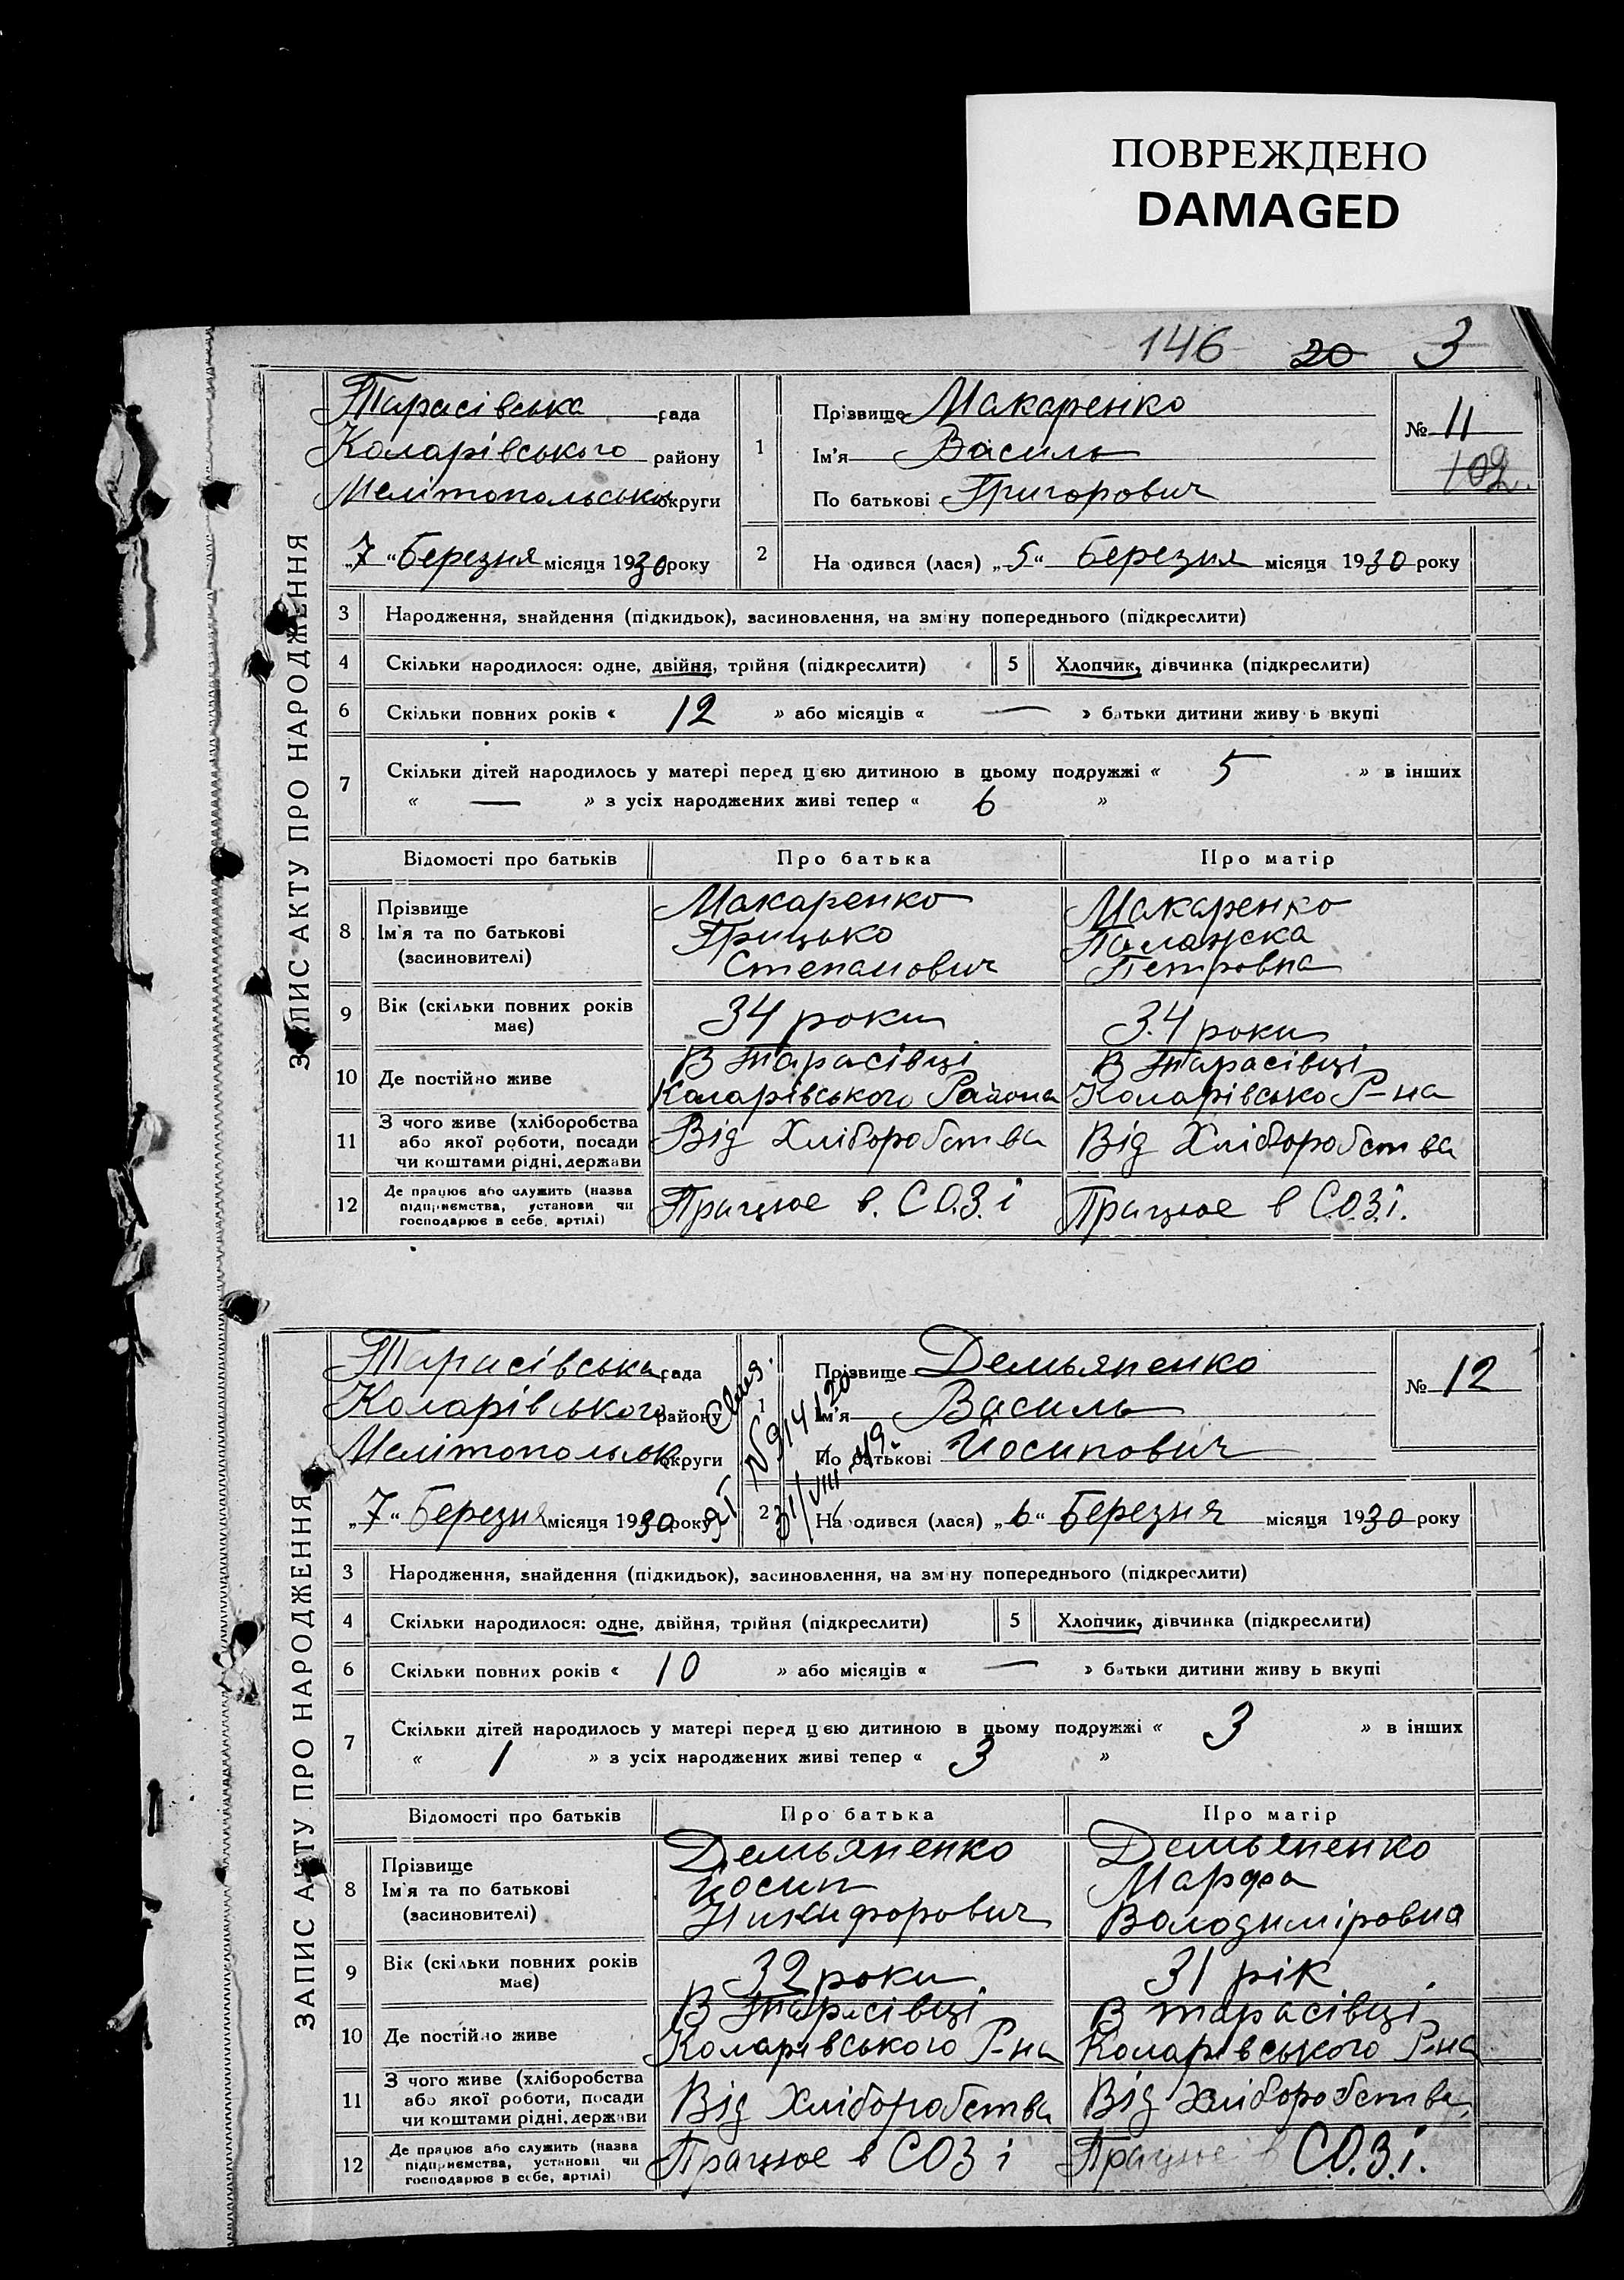 ПОВРЕЖДЕНО
DAMAGED
146 20 3
ЗАПИС АКТУ ПРО НАРОДЖЕННЯ
Тарасівська рада
Коларівського району
Мелітопольської округи
„7“ Березня місяця 1930 року
1
Прізвище Макаренко
Ім'я Василь
По батькові Григорович
№ 11
102
2 На одився (лася) „5“ Березня місяця 1930 року
3 Народження, знайдення (підкидьок), засиновлення, на зм ну попереднього (підкреслити)
4 Скільки народилося: одне, двійня, трійня (підкреслити) 5 Хлопчик, дівчинка (підкреслити)
6 Скільки повних років « 12 » або місяців « — » батьки дитини живу ь вкупі
7 Скільки дітей народилось у матері перед цією дитиною в цьому подружжі « 5 » в інших
« — » з усіх народжених живі тепер « 6 »
Відомості про батьків Про батька Про матір
8 Прізвище
Ім'я та по батькові
(засиновителі)
Макаренко
Грицько
Степанович
Макаренко
Палажска
Петровна
9 Вік (скільки повних років
має)
34 роки
34 роки
10 Де постійно живе
В Тарасівці
Коларівського Района
В Тарасівці
Коларівсько Р-на
11 З чого живе (хліборобства
або якої роботи, посади
чи коштами рідні, держави
Від Хліборобства
Від Хліборобства
12 Де працює або служить (назва
підприємства, установи чи
господарює в себе, артілі)
Працює в. С.О.З. і
Працює в С.О.З.і.
ЗАПИС АКТУ ПРО НАРОДЖЕННЯ
Тарасівська рада
Коларівського району
Мелітопольськ округи
„7“ Березня місяця 1930 року
1
Прізвище Демьяненко
Ім'я Василь
По батькові Йосипович
№ 12
31/VIII 49
2 На одився (лася) „6“ Березня місяця 1930 року
3 Народження, знайдення (підкидьок), засиновлення, на зм ну попереднього (підкреслити)
4 Скільки народилося: одне, двійня, трійня (підкреслити) 5 Хлопчик, дівчинка (підкреслити)
6 Скільки повних років « 10 » або місяців « — » батьки дитини живу ь вкупі
7 Скільки дітей народилось у матері перед цією дитиною в цьому подружжі « 3 » в інших
« 1 » з усіх народжених живі тепер « 3 »
Відомості про батьків Про батька Про матір
8 Прізвище
Ім'я та по батькові
(засиновителі)
Демьяненко
Йосип
Никифорович
Демьяненко
Марфа
Володиміровна
9 Вік (скільки повних років
має)
32 роки
31 рік
10 Де постійно живе
В Тарасівці
Коларівського Р-на
В тарасівці
Коларівського Р-на
11 З чого живе (хліборобства
або якої роботи, посади
чи коштами рідні, держави
Від Хліборобства
Від Хліборобства
12 Де працює або служить (назва
підприємства, установи чи
господарює в себе, артілі)
Працює в СОЗ і
Працює в С.О.З.і.